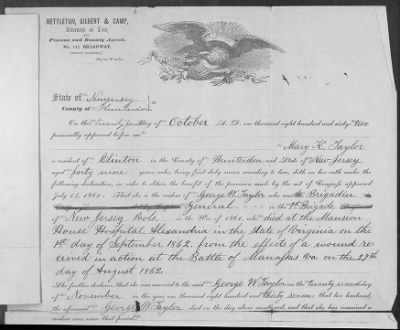 NETTLETON, GILBERT & CAMP,
Attorneys at Law,
AND
Pension and Bounty Agents,
No. 111 BROADWAY,
New-York.
State of New Jersey
County of Hunterdon
On this Twenty day of October A. D. one thousand eight hundred and sixty two
personally appeared before me
Mary K. Taylor
a resident of Clinton in the County of Hunterdon and State of New Jersey
aged forty nine years, who, being first duly sworn according to law, doth on her oath make the
following declaration, in order to obtain the benefit of the provision made by the act of Congress approved
July 14, 1862: That she is the widow of George W Taylor who was Brigadier
General in the 1st Brigade
of New Jersey Vols. in the War of 1861, who died at the Mansion
House Hospital Alexandria in the State of Virginia on the
1st day of September 1862, from the effects of a wound re
ceived in action at the Battle of Manassas Va on the 27th
day of August 1862.
She further declares, that she was married to the said George W Taylor on the twenty second
day of November in the year one thousand eight hundred and thirty seven; that her husband,
the aforesaid George W Taylor died on the day above mentioned, and that she has remained a
widow ever since that period